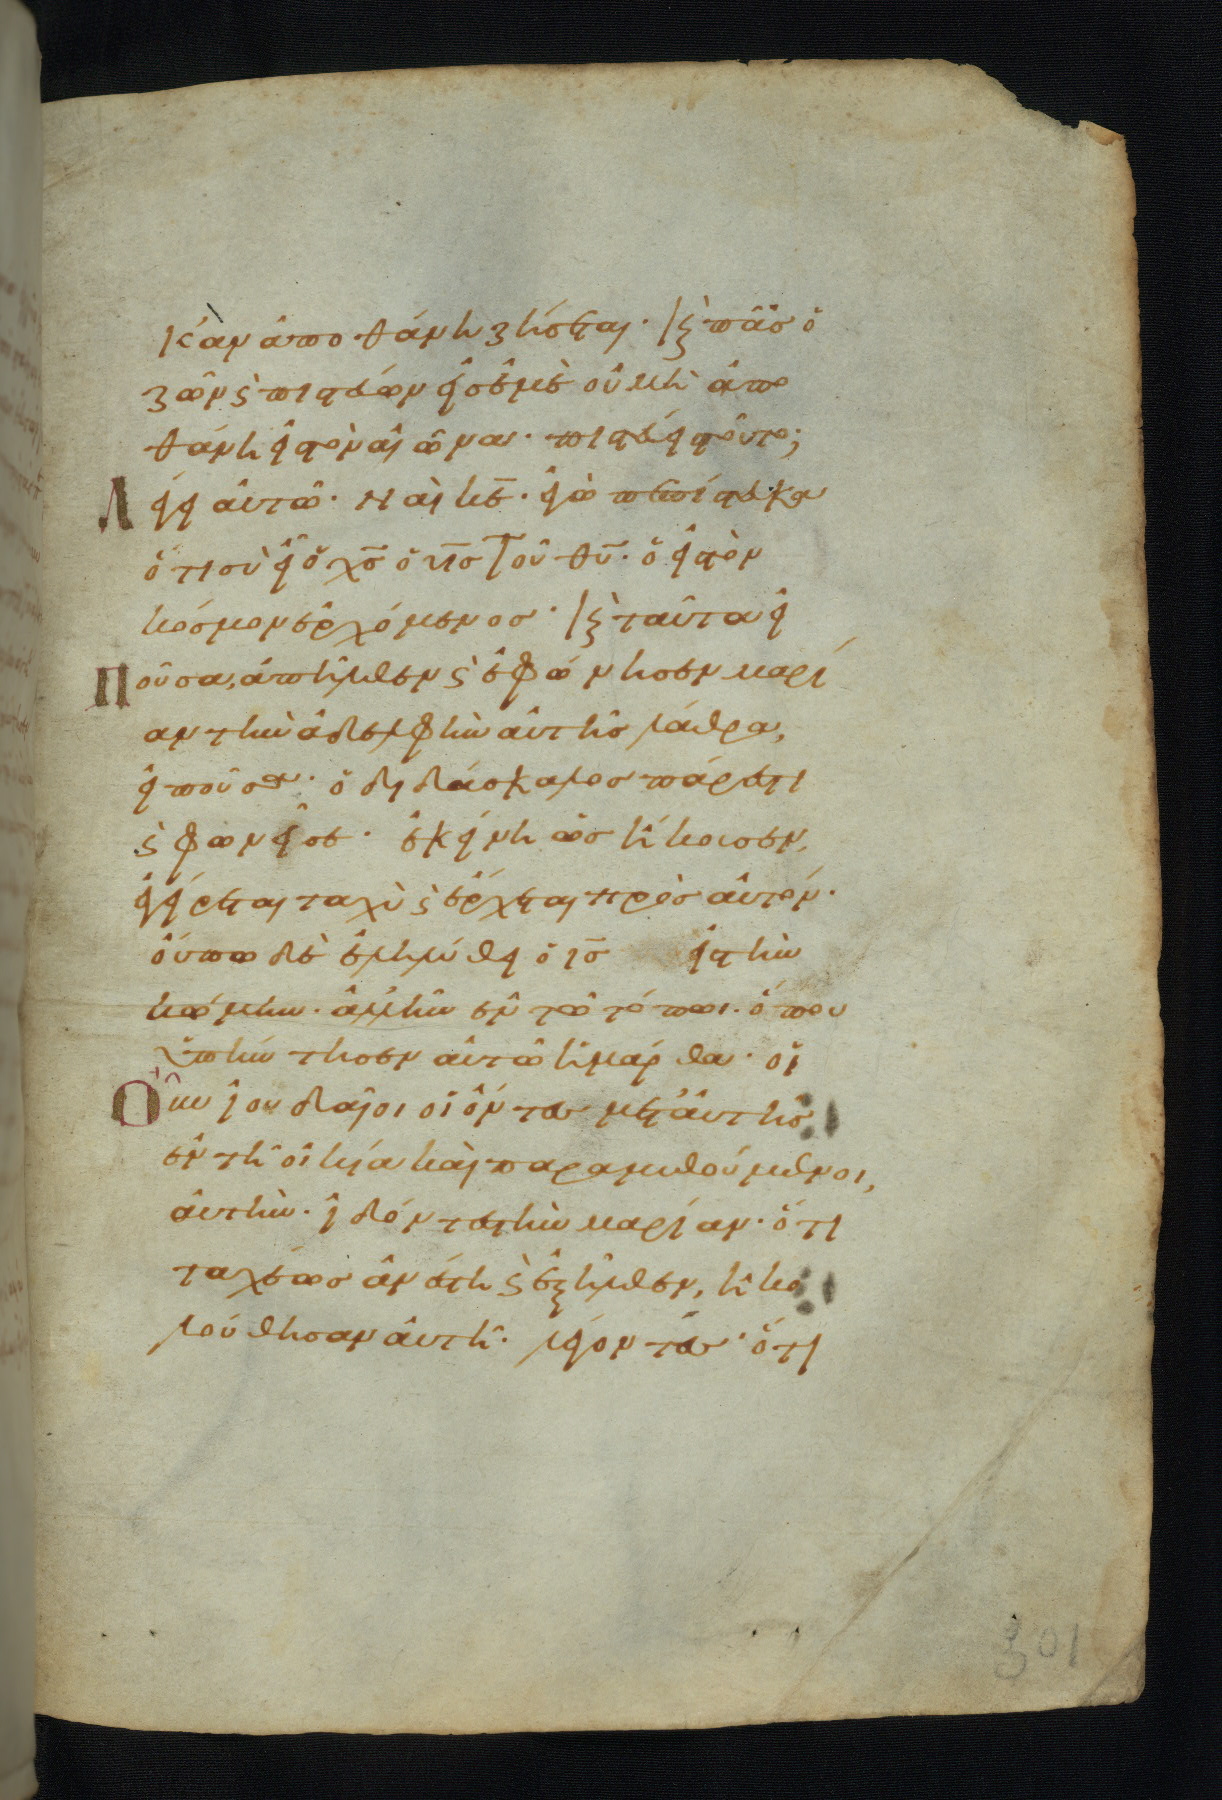 κἀν ἀποθάνη ζήσεται· καὶ πᾶσ ὁ
ζῶν ϗ πιστεύων εἰσ ἐμὲ οὐ μὴ ἀπο
θάνη εἰσ τὸν αἰῶνα· πιστεύεισ τοῦτο;
Λέγει αὐτῶ· ναὶ κε̅· ἐγὼ πεπίστευκα
ὅτι σὺ εἶ ὁ χσ̅ ὁ υἱσ̅ τοῦ θυ̅· ὁ εἰσ τὸν
κόσμον ἐρχόμενοσ· καὶ ταῦτα εἰ
Ποῦσα, ἀπῆλθεν ϗ ἐφώνησεν μαρί
αν τὴν ἀδελφὴν αὐτῆσ λάθρα,
εἰποῦσα· ὁ διδάσκαλοσ πάρεστι
ϗ φωνεῖ σε· ἐκείνη ὡσ ἤκουσεν,
ἐγείρεται ταχὺ ϗ ἔρχεται πρὸσ αὐτόν·
οὔπω δὲ ἐληλύθει ὁ ισ̅ εἰσ τὴν
κώμην· ἀλλ' ἦν ἐν τῶ τόπωι· ὅπου
ὑπήντησεν αὐτῶ ἡ μάρθα· οἱ
Οὖν ἰουδαῖοι οἱ ὄντεσ μετ' αὐτῆσ
ἐν τῆ οἰκία καὶ παραμυθούμενοι,
αὐτήν· ἰδόντεσ τὴν μαρίαν· ὅτι
ταχέωσ ἀνέστη ϗ ἐξῆλθεν, ἠκο
λούθησαν αὐτῆ· λέγοντεσ· ὅτι
301